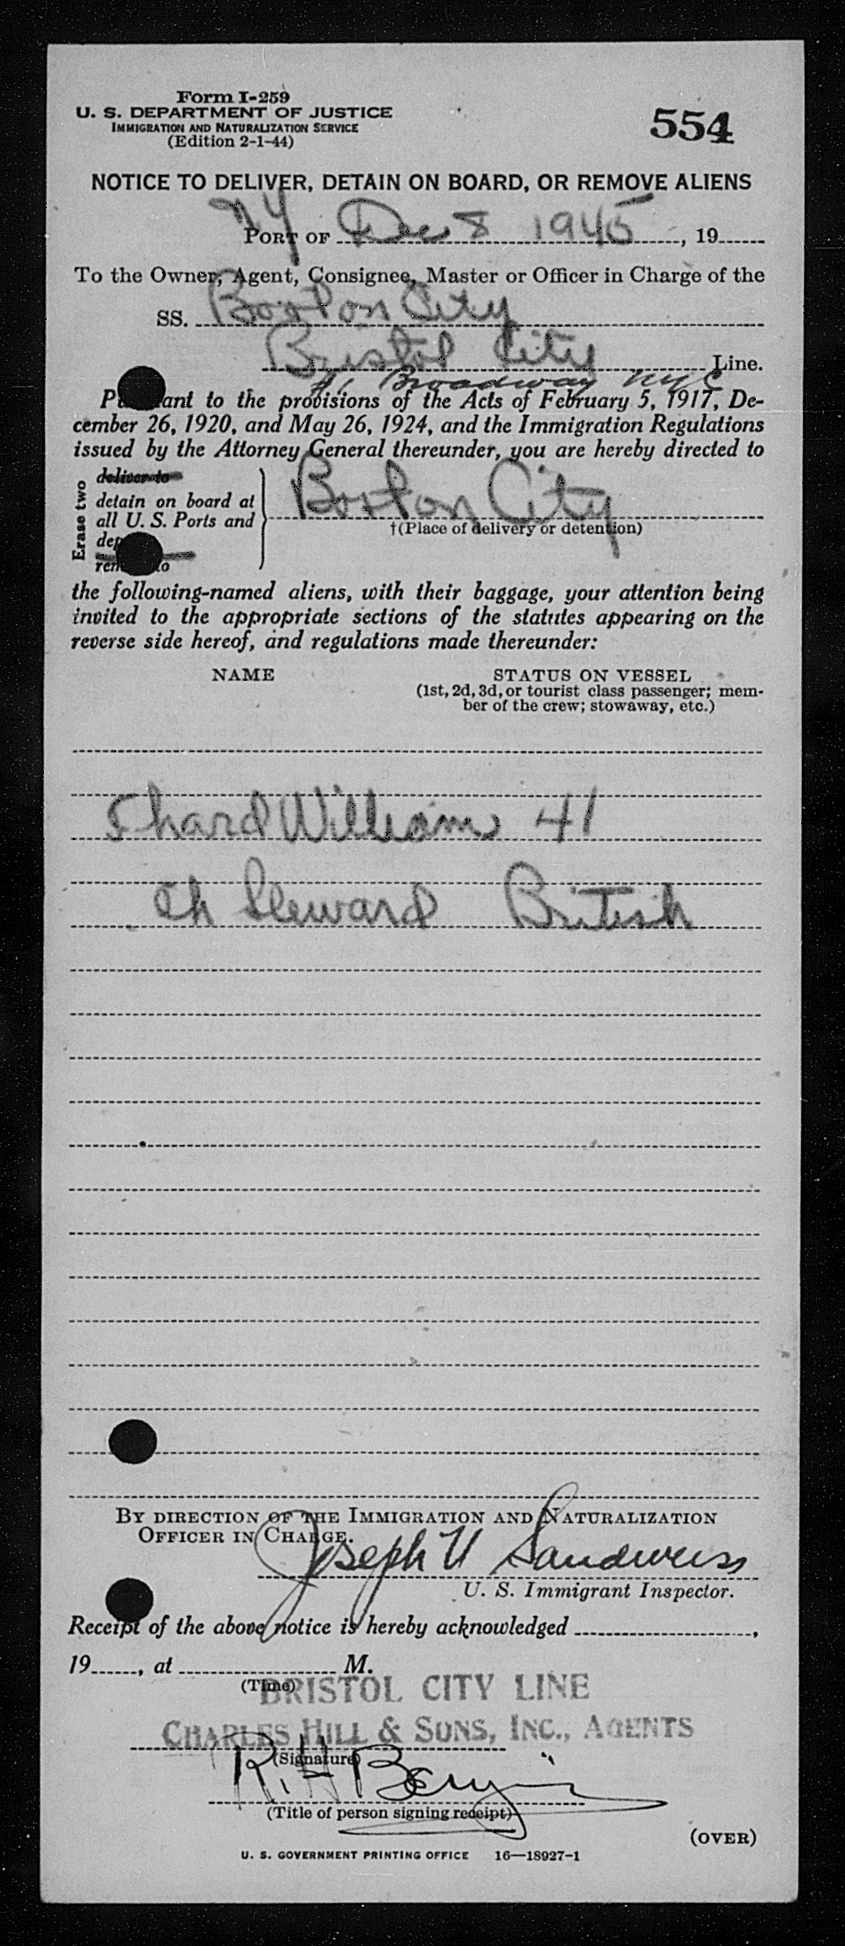 Form I-259
U. S. DEPARTMENT OF JUSTICE
IMMIGRATION AND NATURALIZATION SERVICE
(Edition 2-1-44)
554
NOTICE TO DELIVER, DETAIN ON BOARD, OR REMOVE ALIENS
NY
PORT OF Dec 8 1945, 19
To the Owner, Agent, Consignee, Master or Officer in Charge of the
SS. Boston City
Bristol City Line.
#1 Broadway NYC
P ant to the provisions of the Acts of February 5, 1917, De-
cember 26, 1920, and May 26, 1924, and the Immigration Regulations
issued by the Attorney General thereunder, you are hereby directed to
Erase two
deliver to
detain on board at
all U. S. Ports and
Boston City
†(Place of delivery or detention)
the following-named aliens, with their baggage, your attention being
invited to the appropriate sections of the statutes appearing on the
reverse side hereof, and regulations made thereunder:
NAME STATUS ON VESSEL
(1st, 2d, 3d, or tourist class passenger; mem-
ber of the crew; stowaway, etc.)
William 41
Ch Steward British
BY DIRECTION OF THE IMMIGRATION AND NATURALIZATION
OFFICER IN CHARGE.
Joseph Sandweiss
U. S. Immigrant Inspector.
Receipt of the above notice is hereby acknowledged ,
19 , at M.
(Time)
BRISTOL CITY LINE
CHARLES HILL & SONS, INC., AGENTS
(Signature)
R. H.
(Title of person signing receipt)
(OVER)
U. S. GOVERNMENT PRINTING OFFICE 16—18927-1